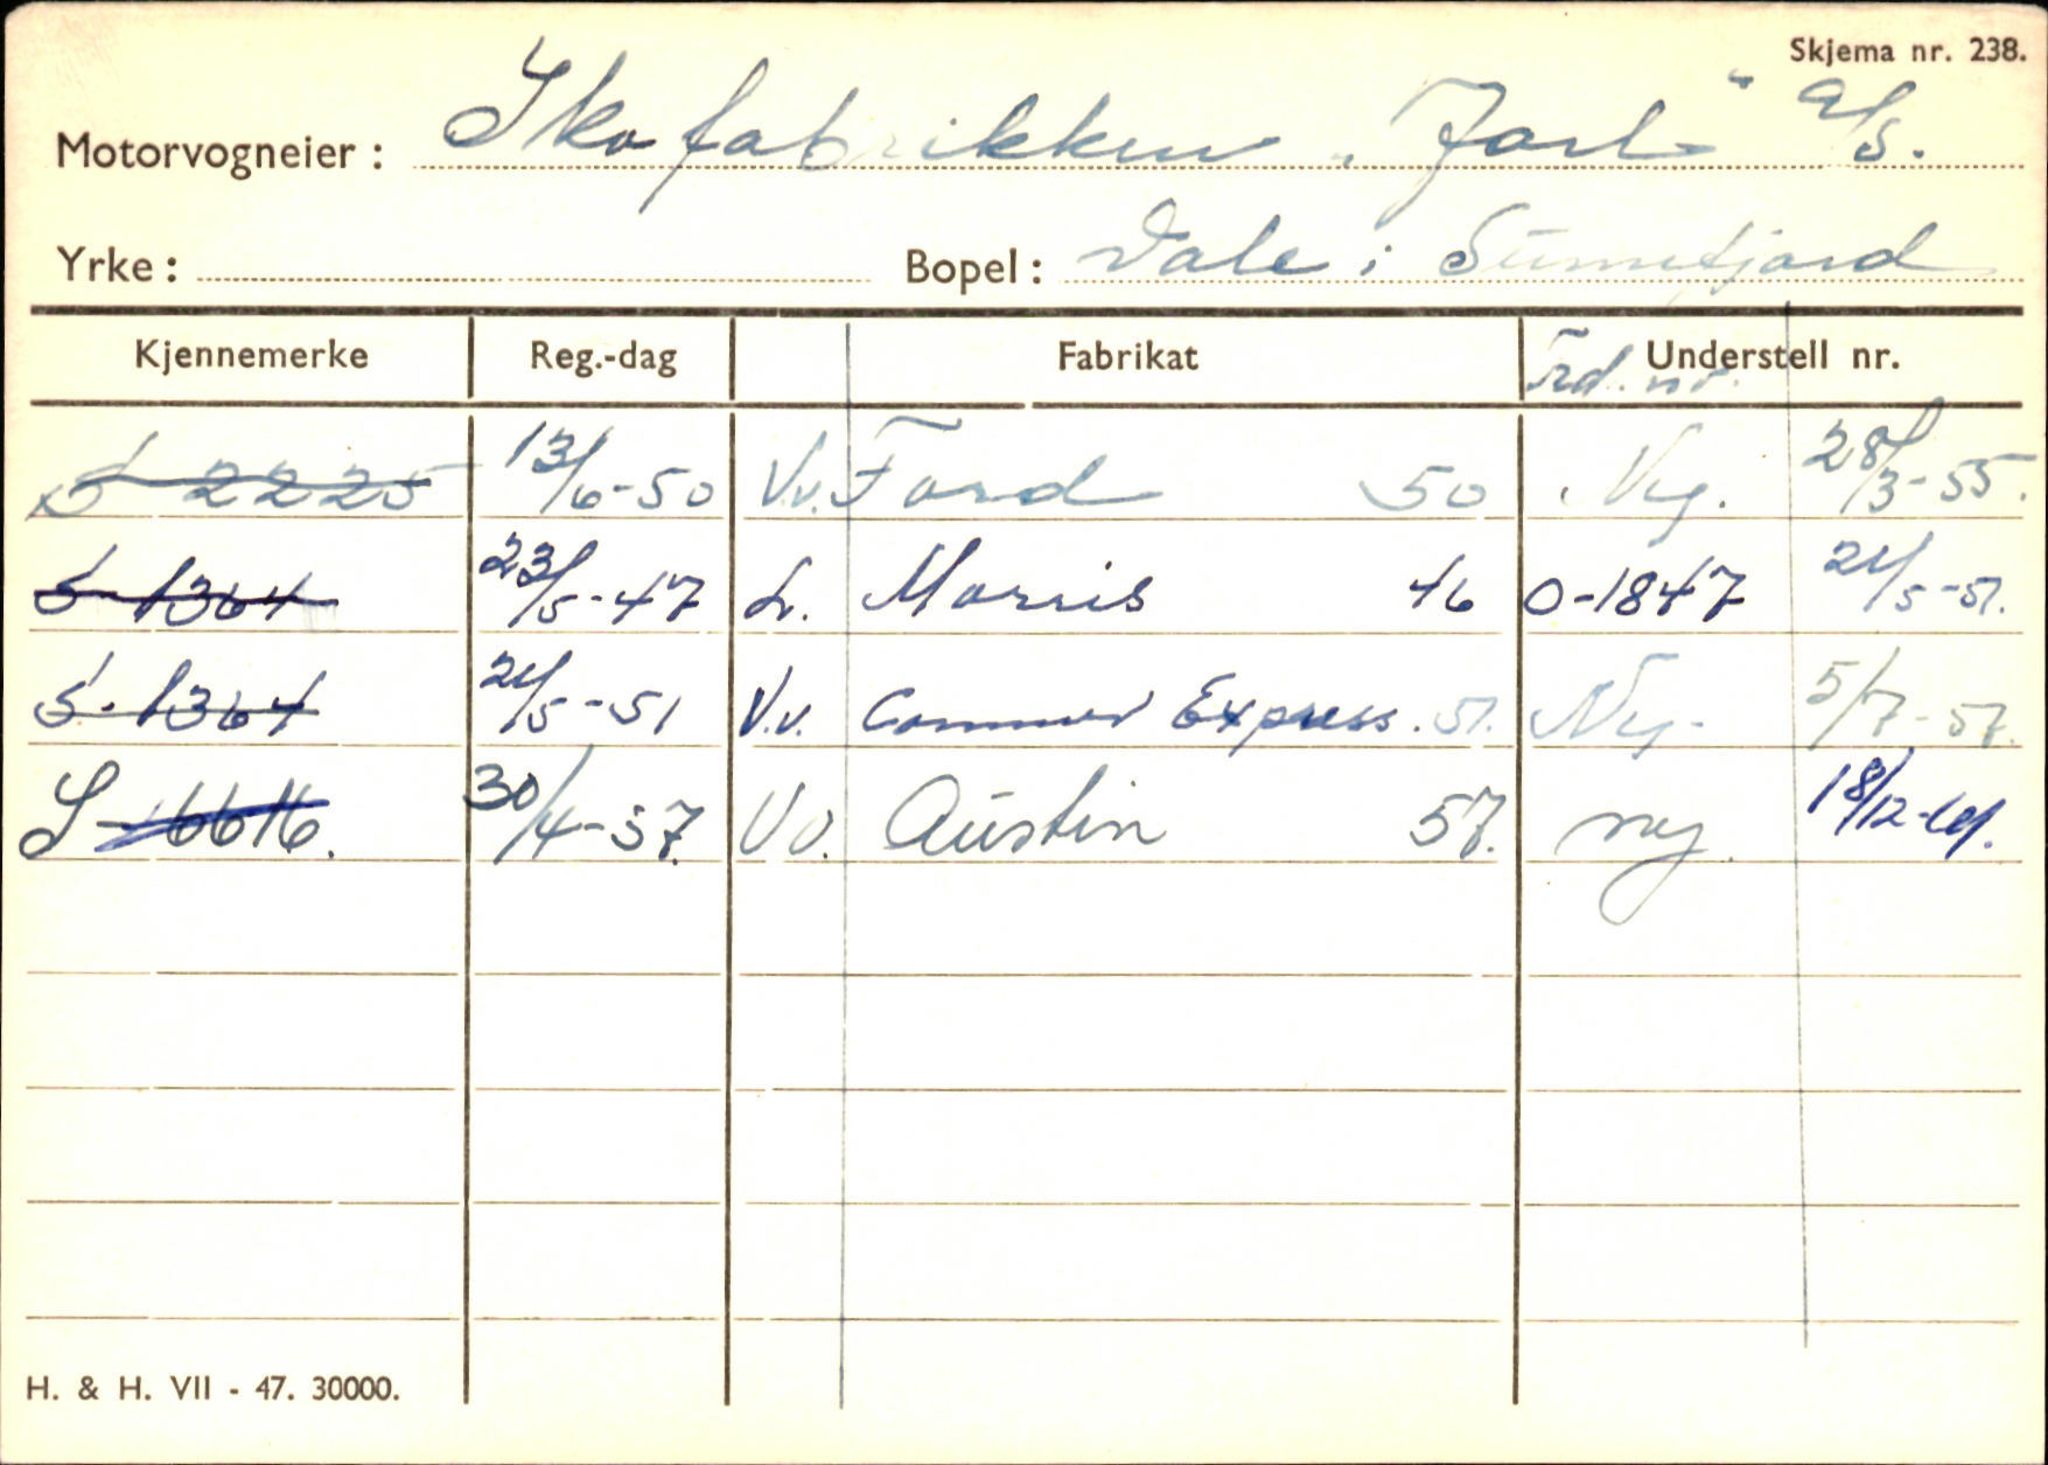 Skjema nr. 238.
Motorvogneier : Skofabrikken „Jarl" a/s.
Yrke : Bopel : Dale i Sunnfjord
Kjennemerke Reg.-dag Fabrikat Understell nr.
Trd. nr.
S 2225 13/6-50 V.v. Ford 50 Ny. 28/3-55.
S-1364 23/5-47 L. Morris 46 0-1847 21/5-51.
S-1364 21/5-51 V.v. Commer Express. 51. Ny. 5/7-57.
S-6616. 30/4-57. V v. Austin 57. ny. 18/12-61.
H. & H. VII - 47. 30000.